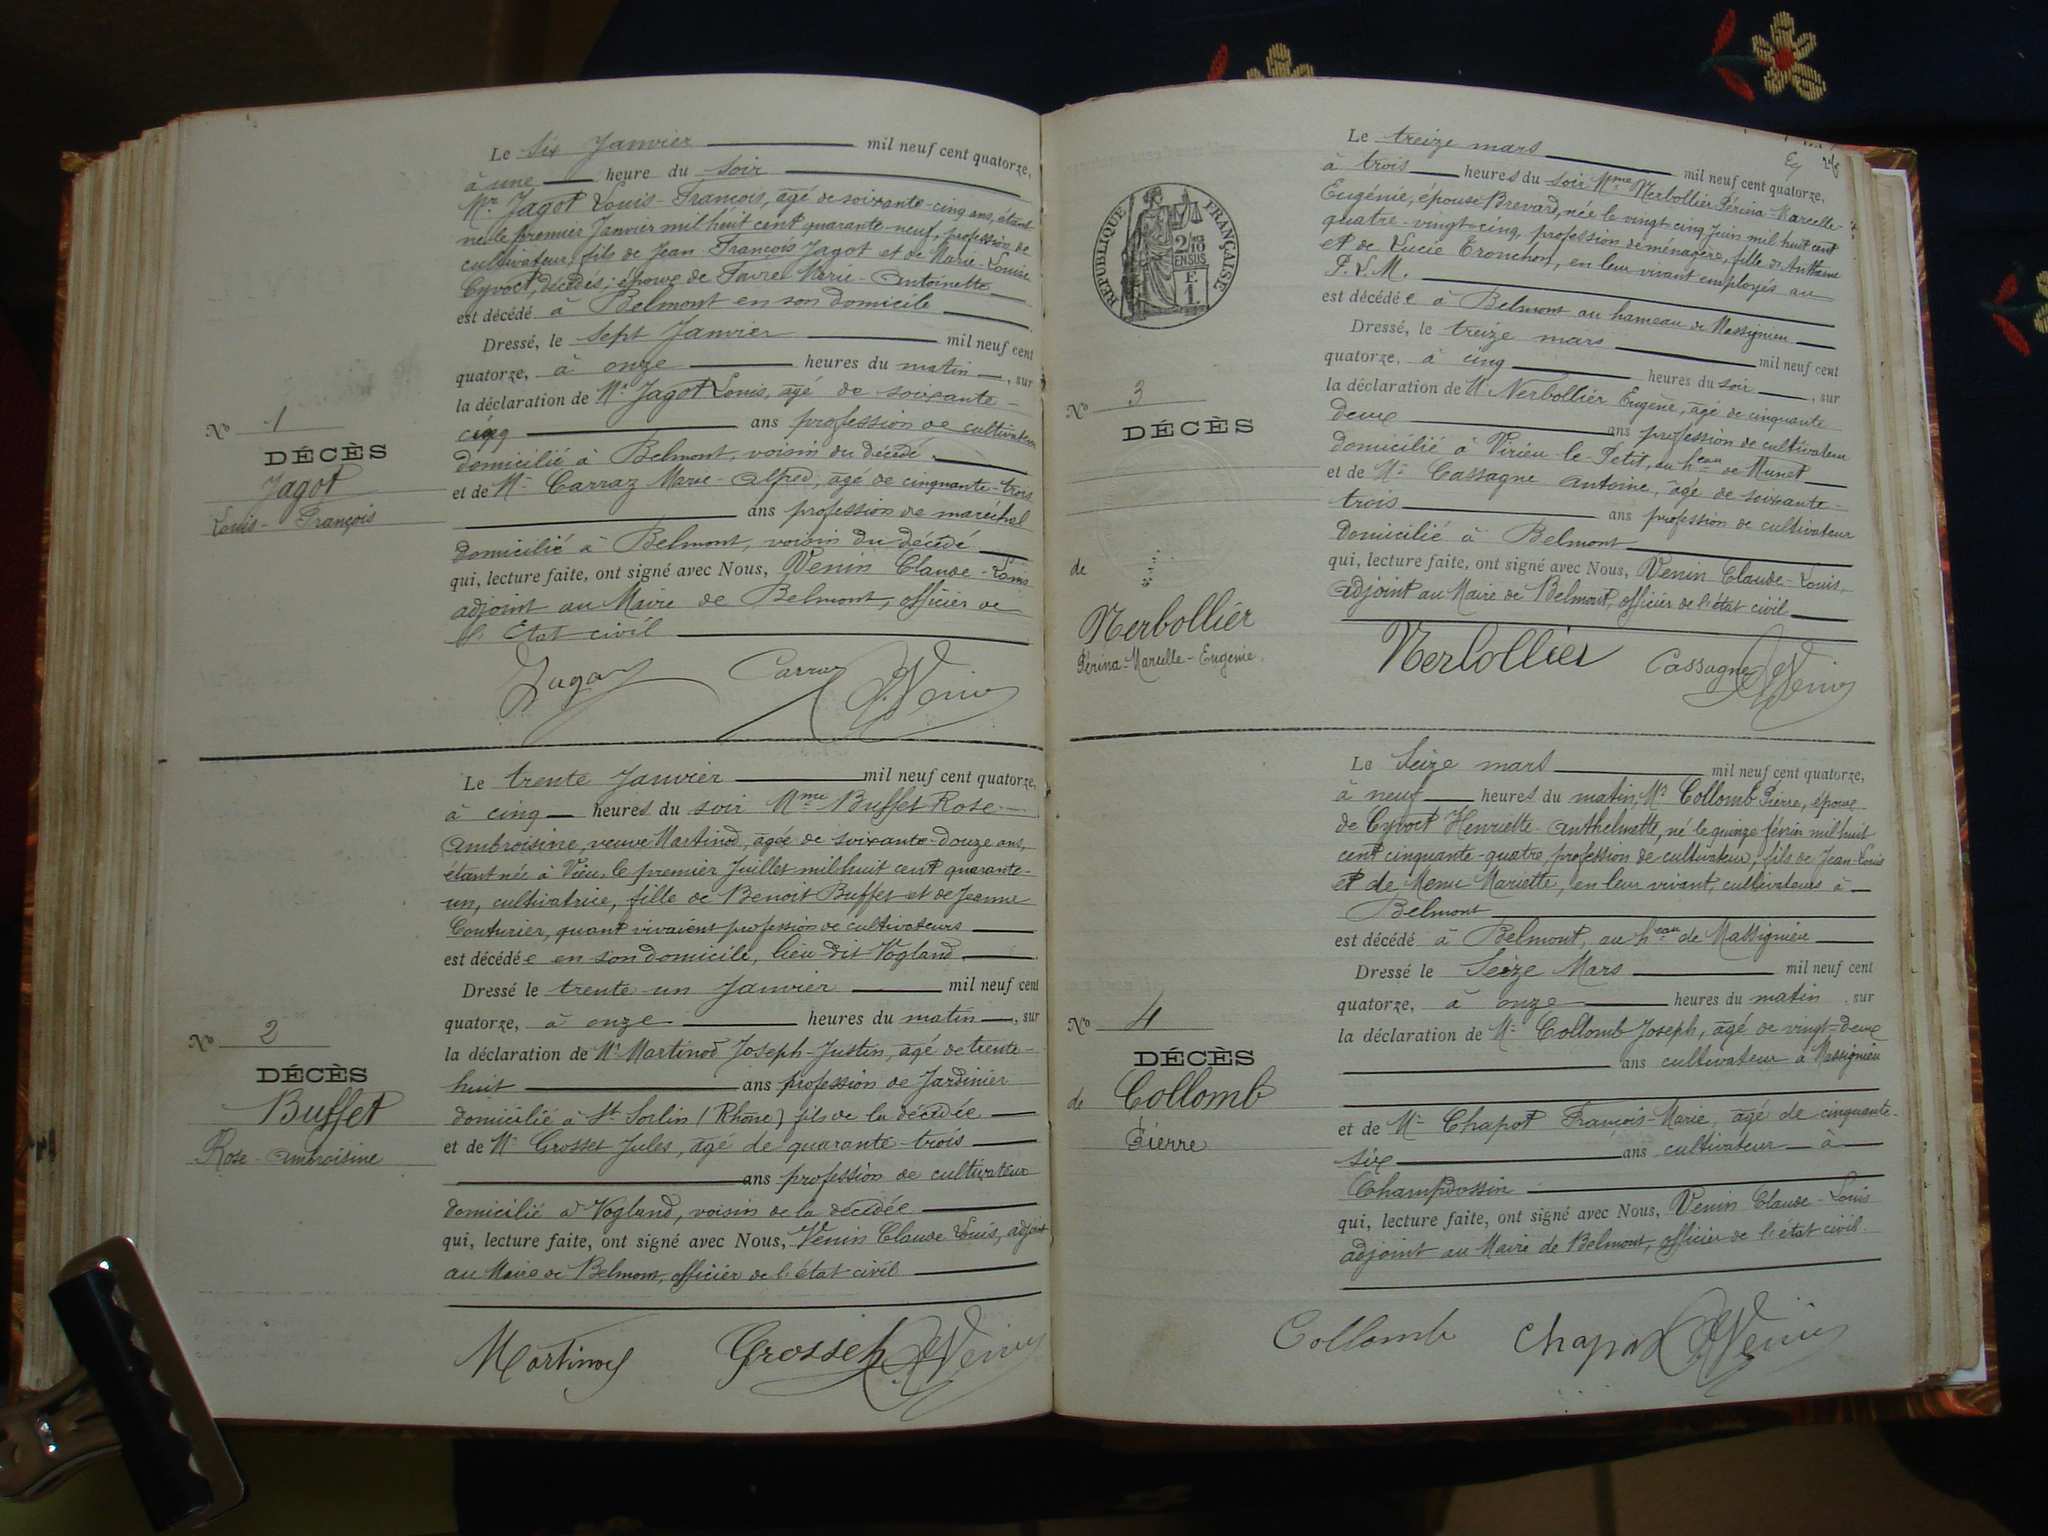 Le six Janvier mil neuf cent quatorze,
à une heure du soir
Mr Jagot Louis-François, âgé de soixante-cinq ans, étant
né le premier Janvier mil huit cent quarante-neuf, profession de
cultivateur, fils de Jean François Jagot et de Marie-Louise
Cyvoct, décédés; époux de Favre Marie-Antoinette
est décédé à Belmont en son domicile
Dressé, le sept Janvier mil neuf cent
quatorze, à onze heures du matin, sur
la déclaration de Mr Jagot Louis, âgé de soixante-
cinq ans profession de cultivateur
domicilié à Belmont, voisin du décédé
et de Mr Carraz Marie-Alfred, âgé de cinquante-trois
ans profession de maréchal
domicilié à Belmont, voisin du décédé
qui, lecture faite, ont signé avec Nous, Venin Claude-Louis
adjoint au Maire de Belmont, officier de
l'Etat civil
No 1
DÉCÈS
Jagot
Louis-François
Jagot Carraz Venin
Le trente Janvier mil neuf cent quatorze,
à cinq heures du soir Mme Buffet Rose-
Ambroisine, veuve Martinod, âgée de soixante-douze ans,
étant née à Vieu, le premier Juillet mil huit cent quarante-
un, cultivatrice, fille de Benoit Buffet et de Jeanne
Couturier, quant vivaient profession de cultivateurs
est décédée en son domicile, lieu dit Vogland
Dressé le trente-un Janvier mil neuf cent
quatorze, à onze heures du matin, sur
la déclaration de Mr Martinod Joseph-Justin, âgé de trente-
huit ans profession de Jardinier
domicilié à St Sorlin (Rhône) fils de la décédée
et de Mr Grosset Jules, âgé de quarante-trois
ans profession de cultivateur
domicilié à Vogland, voisin de la décédée
qui, lecture faite, ont signé avec Nous, Venin Claude Louis, adjoint
au Maire de Belmont, officier de l'état civil
No 2
DÉCÈS
Buffet
Rose-Ambroisine
Martinod Grosset Venin
RÉPUBLIQUE FRANÇAISE
2/10
EN SUS
F.
1.
Le treize mars mil neuf cent quatorze,
à trois heures du soir Mme Nerbollier Périna-Marcelle-
Eugénie, épouse Brevard, née le vingt cinq Juin mil huit cent
quatre-vingt-cinq, profession de ménagère, fille de Anthelme
et de Lucie Tronchon, en leur vivant employés au
P.L.M.
est décédée à Belmont au hameau de Massignieu
Dressé, le treize mars mil neuf cent
quatorze, à cinq heures du soir, sur
la déclaration de Mr Nerbollier Eugène, âgé de cinquante
deux ans profession de cultivateur
domicilié à Virieu-le-Petit, au heau de Munet
et de Mr Cassagne Antoine, âgé de soixante-
trois ans profession de cultivateur
domicilié à Belmont
qui, lecture faite, ont signé avec Nous, Venin Claude-Louis,
adjoint au Maire de Belmont, officier de l'état civil
No 3
DÉCÈS
de
Nerbollier
Périna-Marcelle-Eugénie.
Nerbollier Cassagne Venin
Le Seize mars mil neuf cent quatorze,
à neuf heures du matin, Mr Collomb Pierre, époux
de Cyvoct Henriette-Anthelmette, né le quinze février mil huit
cent cinquante-quatre, profession de cultivateur, fils de Jean-Louis
et de Menu Mariette, en leur vivant, cultivateurs à
Belmont
est décédé à Belmont, au heau de Massignieu
Dressé le Seize Mars mil neuf cent
quatorze, à onze heures du matin, sur
la déclaration de Mr Collomb Joseph, âgé de vingt-deux
ans cultivateur à Massignieu
et de Mr Chapot François-Marie, âgé de cinquante-
six ans cultivateur à
Champdossin
qui, lecture faite, ont signé avec Nous, Venin Claude-Louis
adjoint au Maire de Belmont, officier de l'état civil.
No 4
DÉCÈS
de Collomb
Pierre
Collomb Chapot Venin